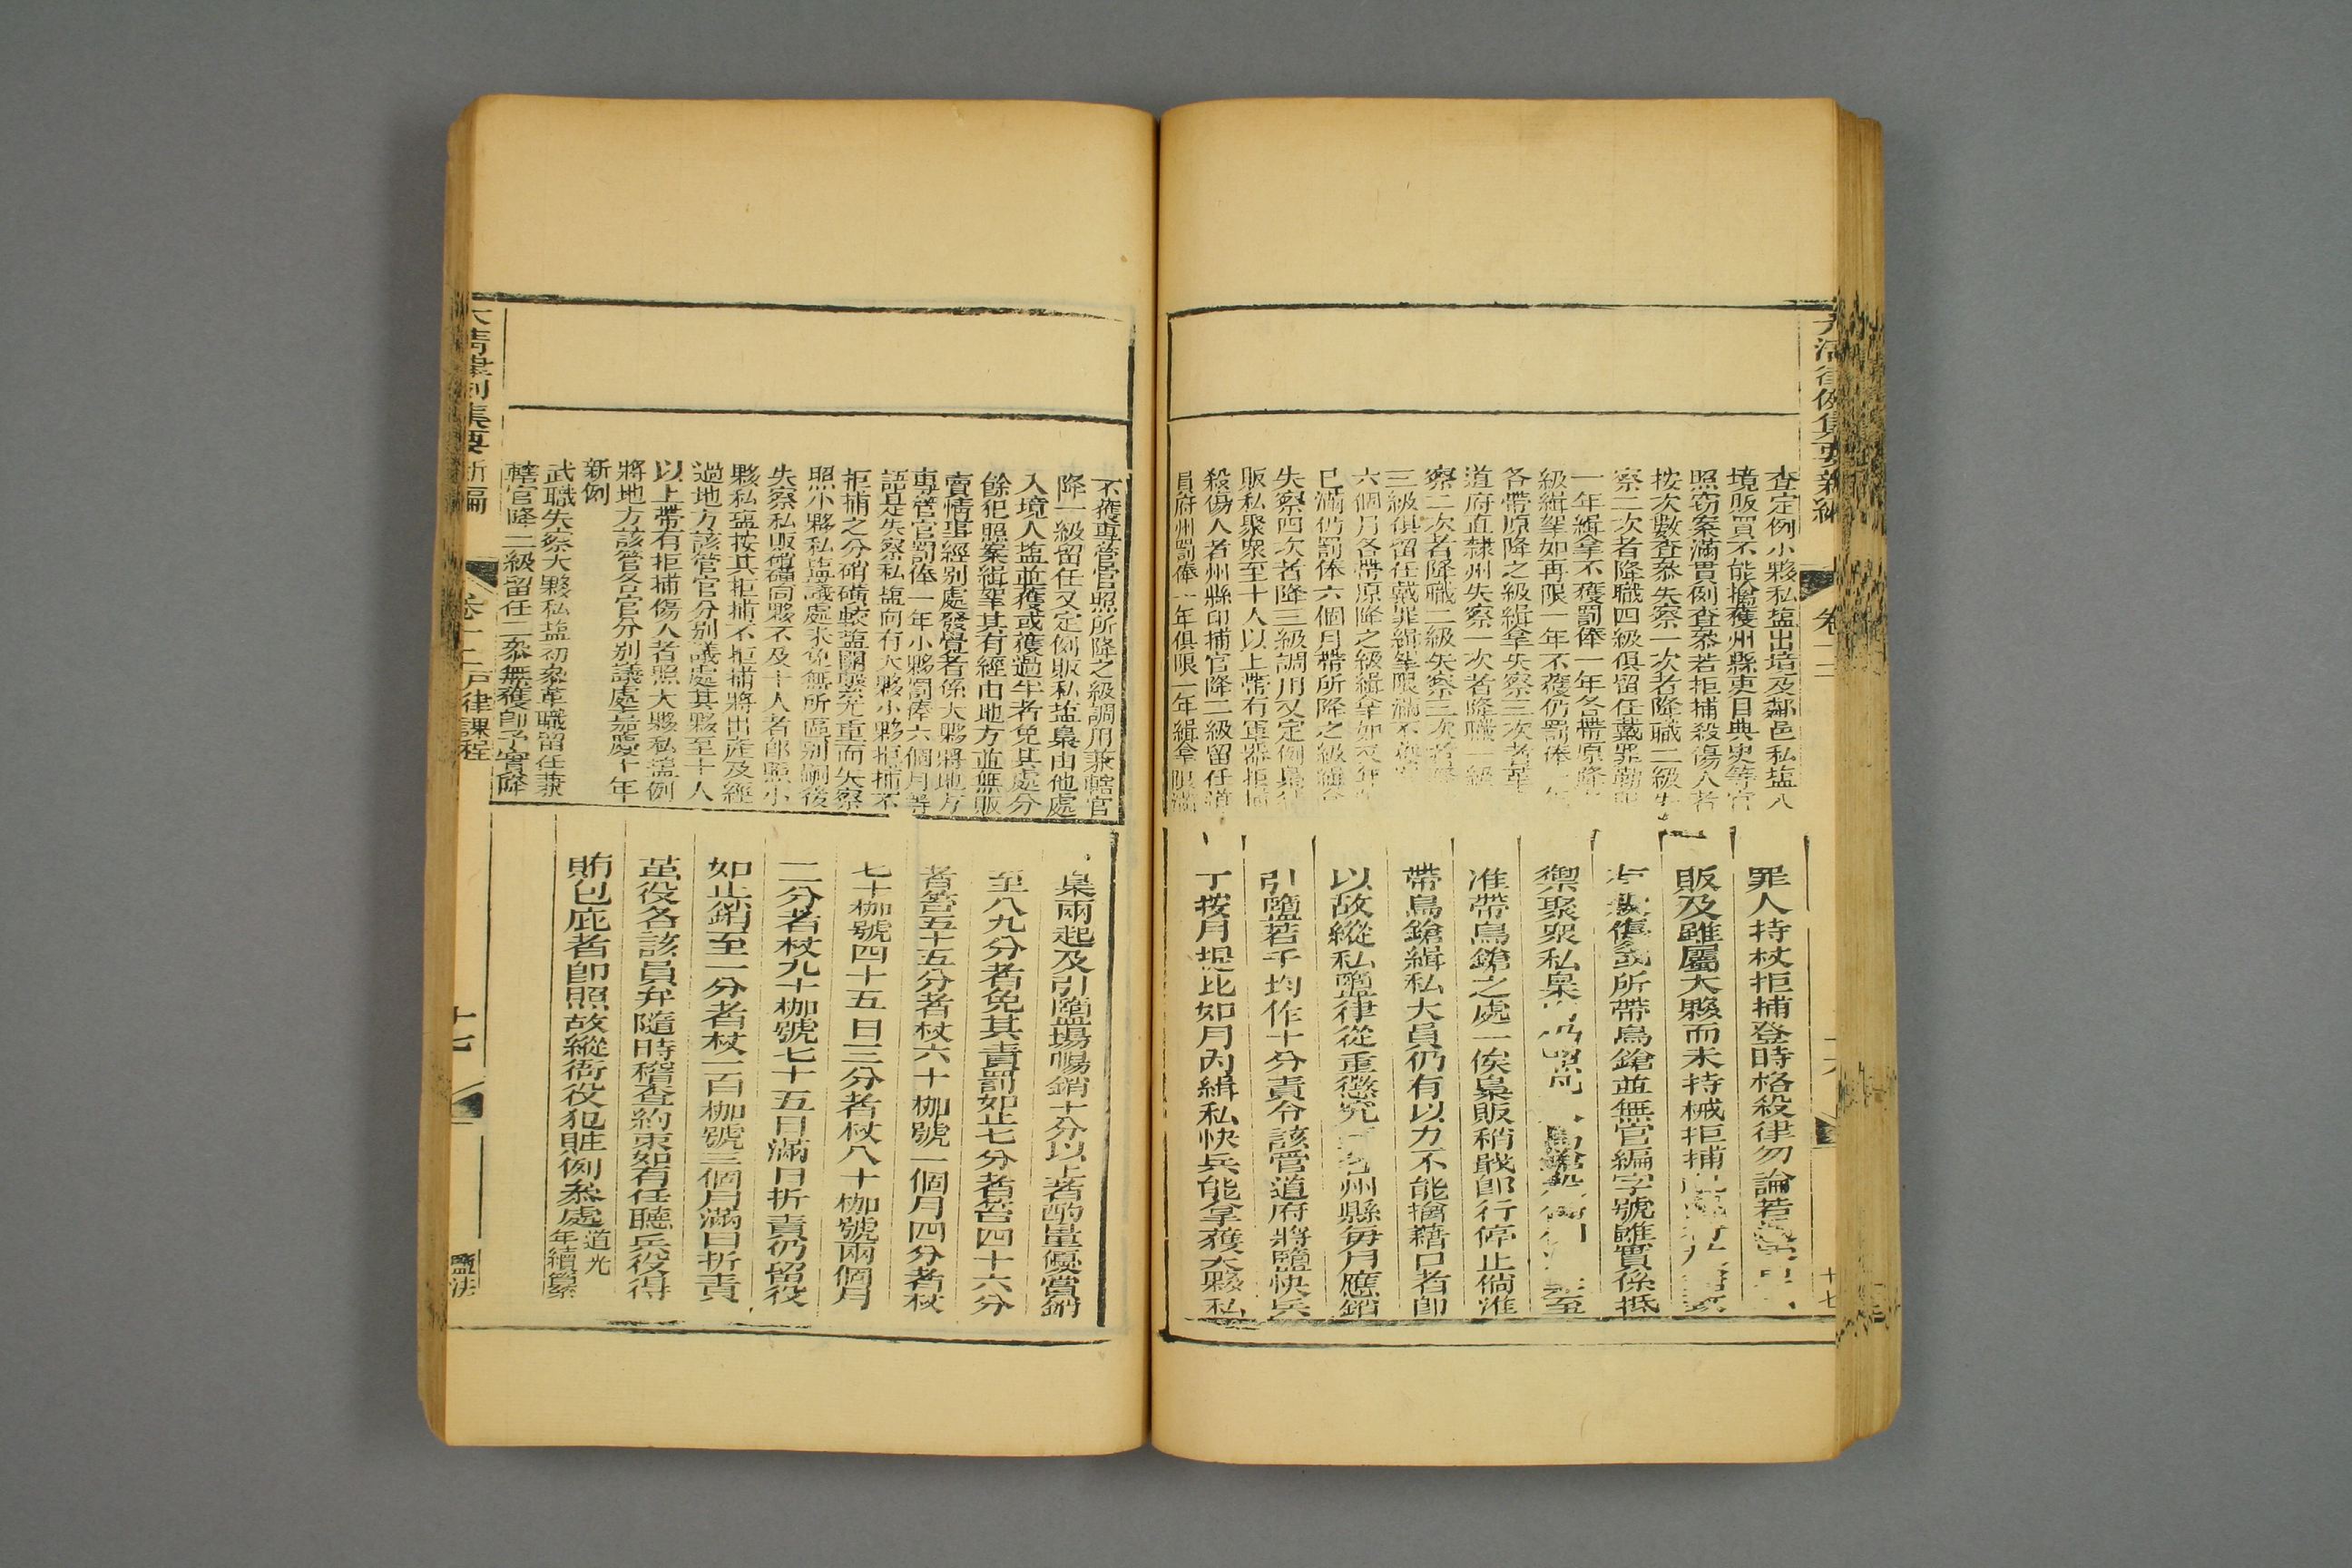 大清律例集要新編
卷十二
十七
查定例小夥私塩出境及鄰邑私塩入
境販賣不能擒獲州縣吏目典史等官
照窃案滿貫例查叅若拒捕殺傷人者
按次數查叅失察一次者降職二級失
察二次者降職四級俱留任戴罪勒
一年緝拿不獲罰俸一年各帶原降
級緝拏如再限一年不獲仍罰俸一
各帶原降之級緝拿失察三次者革
道府直隸州失察一次者降職一級
察二次者降職二級失察三次者降
三級俱留任戴罪緝拏限滿不獲
六個月各帶原降之級緝拿如
已滿仍罰俸六個月帶所降之級緝拿
失察四次者降三級調用又定例梟徒
販私聚眾至十人以上帶有軍器拒捕
殺傷人者州縣印捕官降二級留任道
員府州罰俸一年俱限一年緝拿限滿
罪人持杖拒捕登時格殺律勿論若
販及雖屬大夥而未持械拒捕
所帶鳥鎗並無官編字號雖實係抵
禦聚眾私梟
准帶鳥鎗之處一俟梟販稍戢即行停止倘准
帶鳥鎗緝私大員仍有以力不能擒藉口者即
以故縱私鹽律從重懲究州縣每月應銷
引鹽若干均作十分責令該管道府將鹽快兵
丁按月提比如月內緝私快兵能拿獲大夥私
不獲專管官照所降之級調用兼轄官
降一級留任又定例販私塩梟由他處
入境人塩並獲或獲過半者免其處分
餘犯照案緝拏其有經由地方並無販
賣情事經別處發覺者係大夥將地方
專管官罰俸一年小夥罰俸六個月等
語是失察私塩向有大夥小夥拒捕不
拒捕之分硝磺較塩關緊尤重而失察
照小夥私塩議處未免無所區別嗣後
失察私販硝磺同夥不及十人者即照小
夥私塩按其拒捕不拒捕將出産及經
過地方該管官分別議處其夥至十人
以上帶有拒捕傷人者照大夥私塩例
將地方該管各官分別議處嘉慶十年
新例
武職失察大夥私塩初叅革職留任兼
轄官降二級留任二叅無獲即予實降
梟兩起及引鹽暢銷十分以上者酌量優賞銷
至八九分者免其責罰如止七分者笞四十六分
者笞五十五分者杖六十枷號一個月四分者杖
七十枷號四十五日三分者杖八十枷號兩個月
二分者杖九十枷號七十五日滿日折責仍留役
如止銷至一分者杖一百枷號三個月滿日折責
革役各該員弁隨時稽查約束如有任聽兵役得
賄包庇者即照故縱衙役犯賍例叅處道光
年續纂
大清律例集要新編
卷十二戶律課程
十七
鹽法